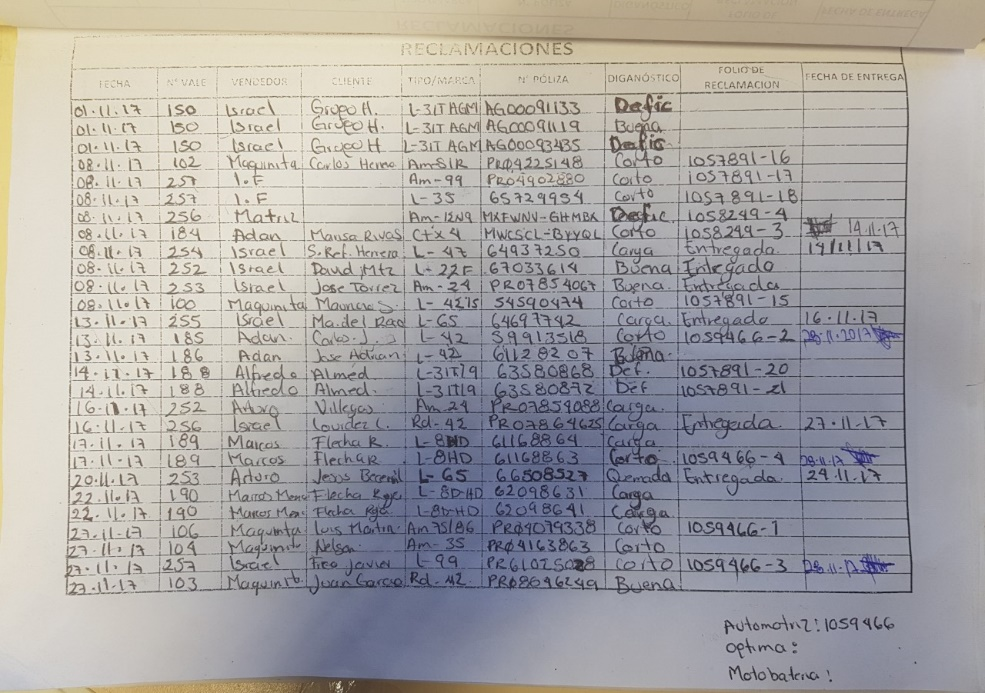 RECLAMACIONES
FECHA N° VALE VENDEDOR CLIENTE TIPO/MARCA N° POLIZA DIGANÓSTICO FOLIO DE RECLAMACION FECHA DE ENTREGA
01.11.17 150 Israel Grupo H. L-31T AGM AG00091133 Defic
01.11.17 150 Israel Grupo H. L-31T AGM AG00091119 Buena
01.11.17 150 Israel Grupo H L-31T AGM AG00093435 Defic
08.11.17 102 Maquinita Carlos Herna PR04225148 Corto 1057891-16
08.11.17 257 I.F Am-99 PR04902880 Corto 1057891-17
08.11.17 257 I.F L-35 65729954 Corto 1057891-18
08.11.17 256 Matriz Am-12N9 MXFWNV-GHMBX Defic. 1058249-4
08.11.17 184 Adan Marisa Rivas Ctx4 MWCSCL-BYYQL Corto 1058249-3 14.11.17
08.11.17 254 Israel S. Ref. Herrera L-47 64937250 Carga Entregada 14/11/17
08.11.17 252 Israel David Mtz L-22F 67033614 Buena Entregado
08.11.17 253 Israel Jose Torrez Am-24 PR07854067 Buena Entregada
08.11.17 100 Maquinita L-4215 54590474 Corto 1057891-15
13.11.17 255 Israel Ma. del L-65 64697742 Carga Entregado 16.11.17
13.11.17 185 Adan. L-42 59913518 Corto 1059466-2 28.11.2017
13.11.17 186 Adan Jose Adrian L-42 61128207 Buena.
14.11.17 188 Alfredo Almed L-31T19 63580868 Def. 1057891-20
14.11.17 188 Alfredo Almed. L-31T19 63580872 Def 1057891-21
16.11.17 252 Arturo Villegas Am-24 PR07854088 Carga.
16.11.17 256 Israel Lourdez C. Rd-42 PR07864625 Carga Entregada 27.11.17
17.11.17 189 Marcos Flecha R. L-8HD 61168864 Carga
17.11.17 189 Marcos Flecha R L-8HD 61168863 Corto 1059466-4 28.11.17
20.11.17 253 Arturo Jesus L-65 66508527 Quemada Entregada 24.11.17
22.11.17 190 Marcos Flecha L-8D-HD 62098631 Carga
22.11.17 190 Marcos Flecha L-8D-HD 62098641 Carga
27.11.17 106 Maquinita Luis Martin. Am 75/86 PR04079338 Corto 1059466-1
27.11.17 104 Maquinita Nelson Am-35 PR04163863 Corto
27.11.17 257 Israel Javier L-99 PR61025028 Corto 1059466-3 28.11.17
27.11.17 103 Maquinit. Juan Garcia Rd-42 PR08646249 Buena
Automotriz: 1059466
Optima:
Motobateria: